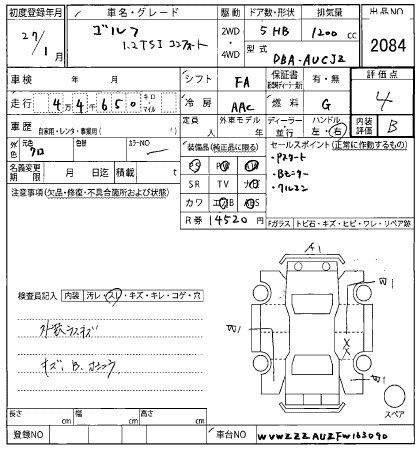 初度登録年月 車名・グレード 駆動 ドア数・形状 排気量 出品NO
27/1月 ゴルフ 1.2TSI コンフォート 2WD・4WD 5 HB 1200 cc 2084
型式 DBA-AUCJZ
車検 年 月 シフト FA 保証書(新車時ディーラー発行) 有・無 評価点
走行 4万4千650 キロ・マイル 冷房 AAC 燃料 G 4
車歴 自家用・レンタ・事業用( ) 定員 人 外車モデル 年 ディーラー・並行 ハンドル 左・右 内装評価 B
外色 元色 クロ 色替 カラーNO 装備品(純正品に限る) セールスポイント(正常に作動するもの)
名義変更期限 月 日迄 積載 t PS PW
・Pスタート
SR TV
・Bモニター
注意事項(欠品・修復・不具合箇所および状態) カワ エアB
・クルコン
R券 14520 円 Fガラス トビ石・キズ・ヒビ・ワレ・リペア跡
A1
検査員記入 内装 汚レ・スレ・キズ・キレ・コゲ・穴
W1
W1
外装うすキズ
X
X
W1
スペア
長さ cm 幅 cm 高さ cm
登録NO 車台NO WVWZZZAUZFW163090